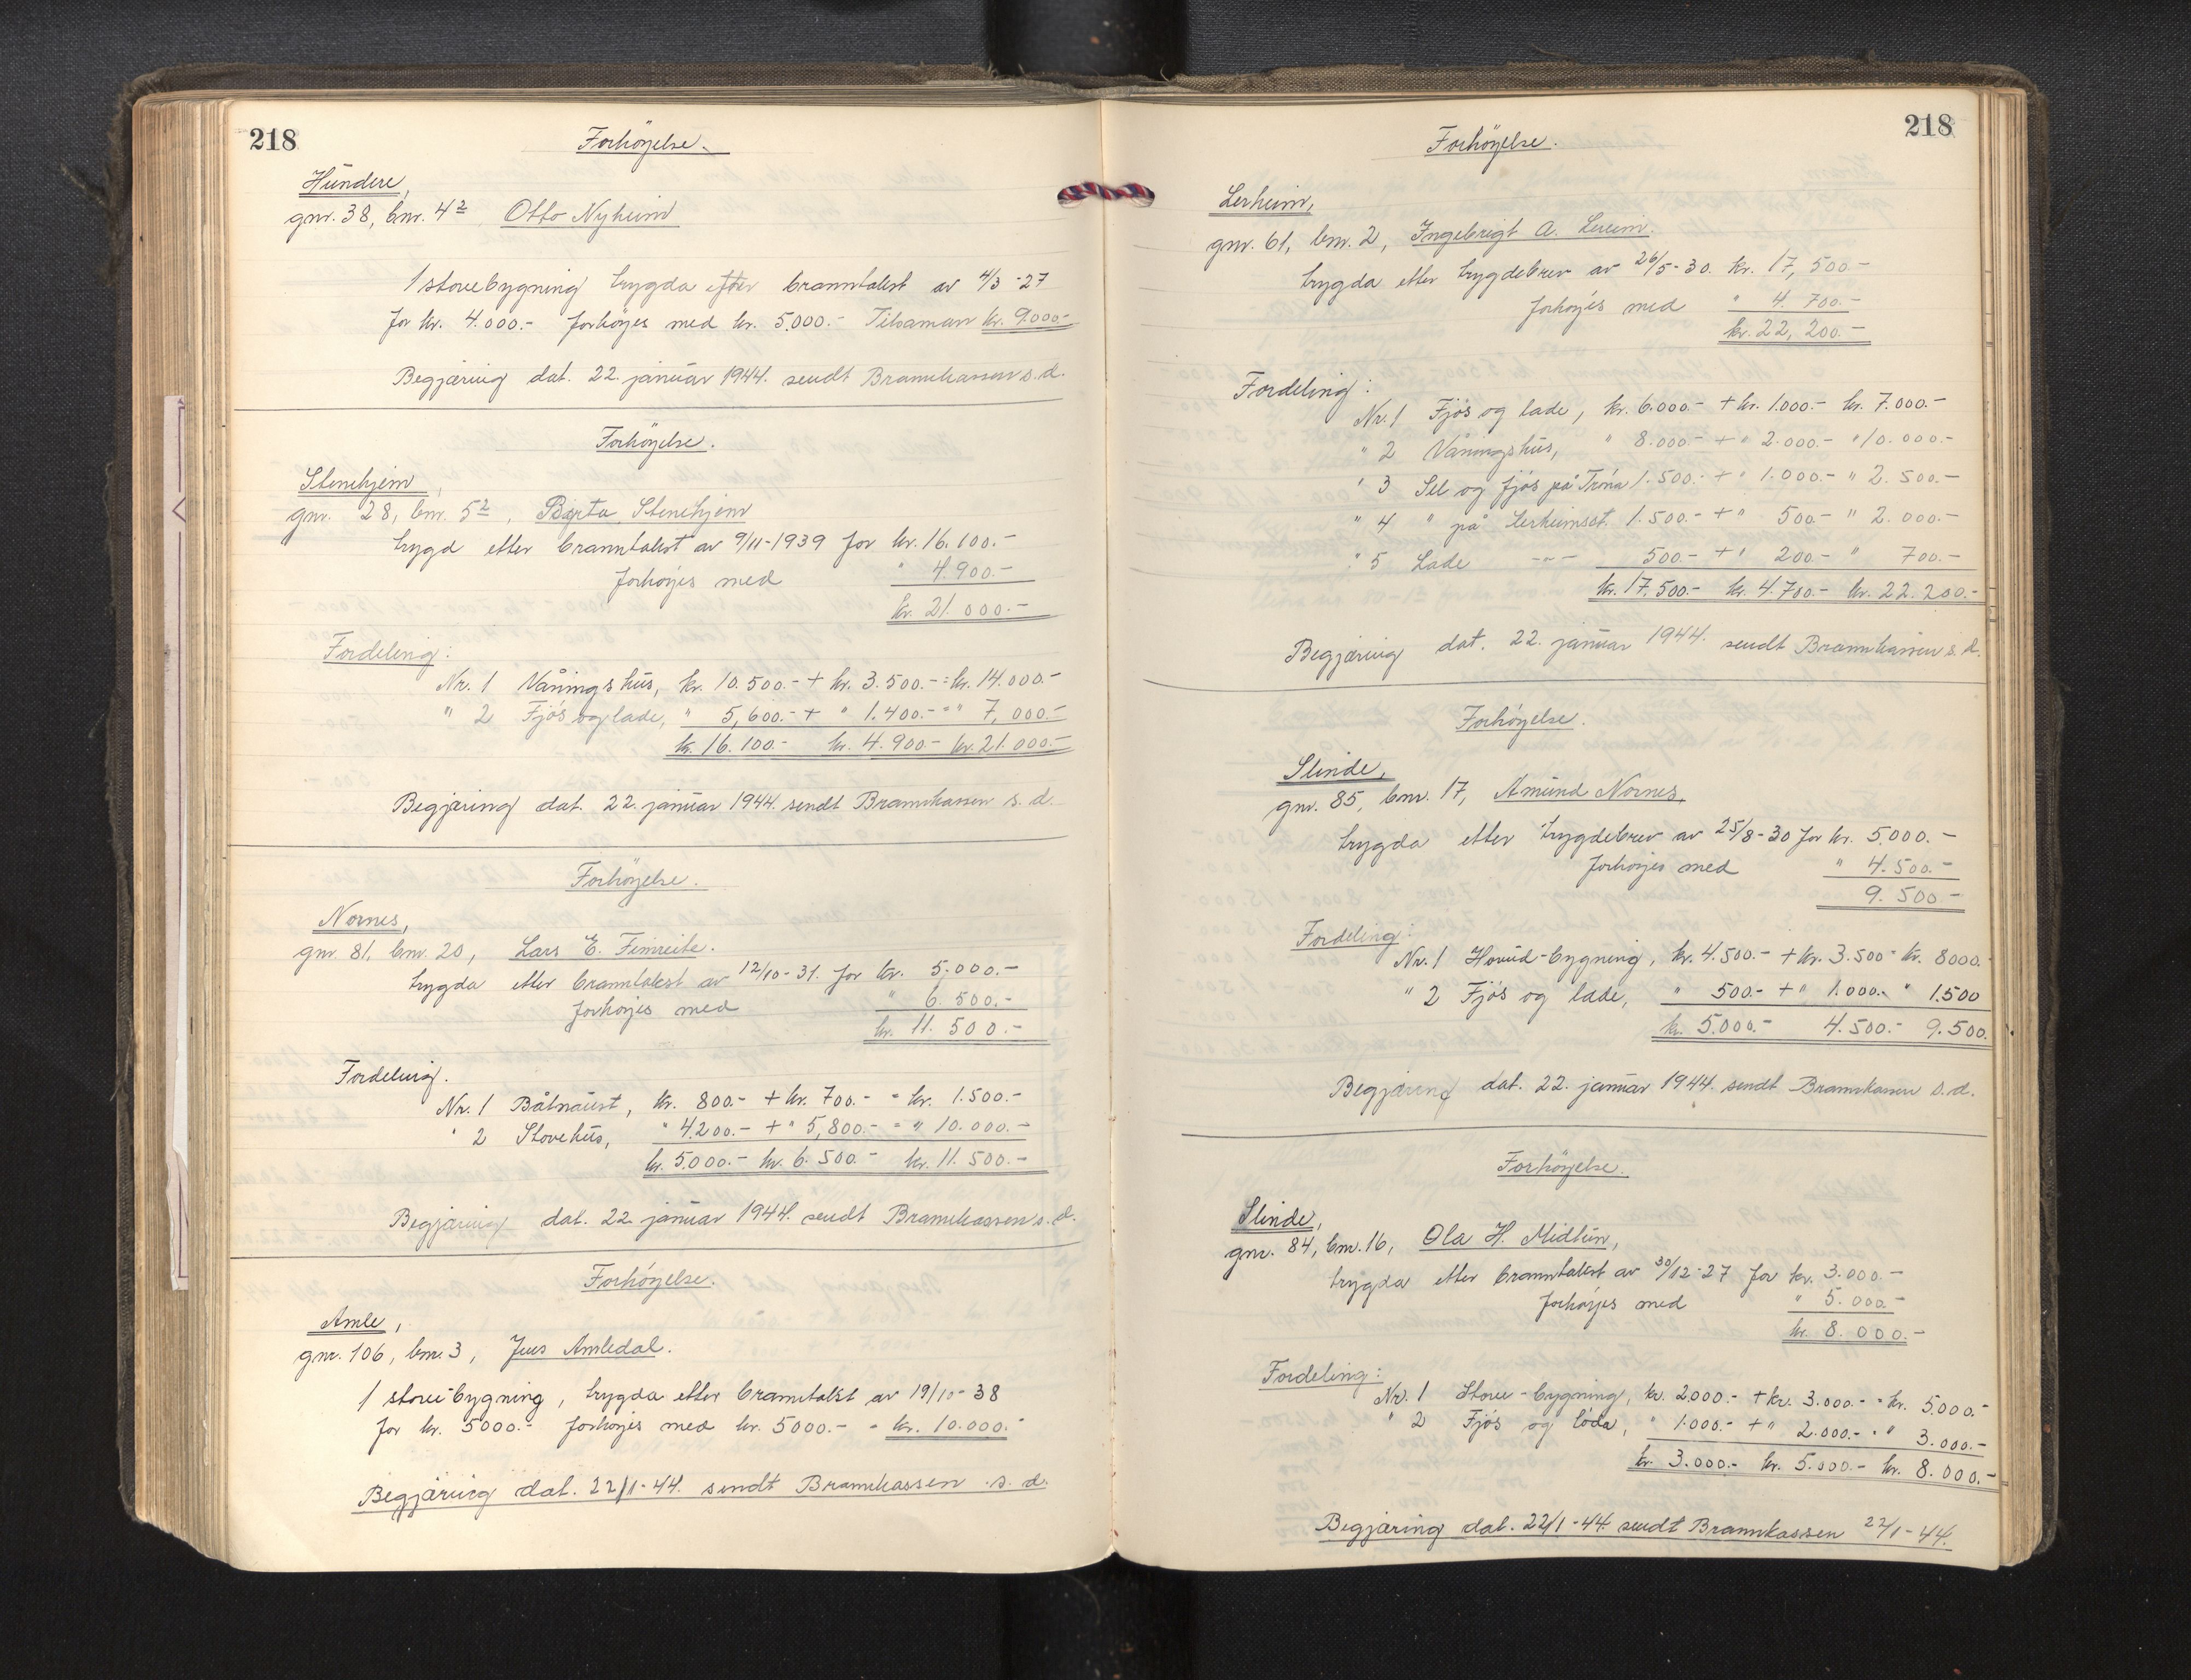 218
Forhöyelse.
Hundere,
gnr. 38, bnr. 4², Otto Nyheim
1 stovebygning trygda efter branntakst av 4/3-27
for kr. 4.000.- forhöyes med kr. 5.000.- Tilsaman kr. 9.000.-
Begjæring dat. 22. januar 1944. sendt Brannkassen s. d.
Forhöyelse.
Stenehjem,
gnr. 28, bnr. 5², Berta Stenehjem
trygd etter branntakst av 9/11-1939 for kr. 16.100.-
forhöyes med " 4.900.-
kr. 21.000.-
Fordeling:
Nr. 1 Våningshus, kr. 10.500.- + kr. 3.500.- = kr. 14.000.-
" 2 Fjös og lade, " 5,600.- + " 1.400.- = " 7,000.-
kr. 16.100.- kr. 4.900.- kr. 21.000.-
Begjæring dat. 22. januar 1944. sendt Brannkassen s. d.
Forhöyelse.
Nornes,
gnr. 81, bnr. 20, Lars E. Fimreite.
trygda etter branntakst av 12/10-31. for kr. 5.000.-
forhöyes med " 6.500.-
kr. 11.500.-
Fordeling.
Nr. 1 Båtnaust, kr. 800.- + kr. 700.- = kr. 1.500.-
" 2 Stovehus, " 4.200.- + " 5,800.- = " 10.000.-
kr. 5.000.- kr. 6.500.- kr. 11.500.-
Begjæring dat. 22. januar 1944. sendt Brannkassen s. d.
Forhöyelse.
Amle,
gnr. 106, bnr. 3, Jens Amledal.
1 stove-bygning, trygda etter branntakst av 19/10-38
for kr. 5000.- forhöyes med kr. 5000.- = kr. 10.000.-
Begjæring dat. 22/1-44. sendt Brannkassen s. d.
218
Forhöyelse.
Lerheim,
gnr. 61, bnr. 2, Ingebrigt A. Lereim.
trygda etter trygdebrev av 26/5-30. kr. 17,500.-
forhöyes med " 4.700.-
kr. 22,200.-
Fordeling:
Nr. 1 Fjös og lade, kr. 6.000.- + kr. 1.000.- kr. 7.000.-
" 2 Våningshus, " 8.000.- + " 2.000.- " 10.000.-
" 3 Sel og fjös på Tróna 1.500.- + " 1.000.- " 2.500.-
" 4 " på Lerheimsst. 1.500.- + " 500.- " 2.000.-
" 5 Lade -"- 500.- + " 200.- " 700.-
kr. 17.500.- kr. 4.700.- kr. 22.200.-
Begjæring dat. 22. januar 1944. sendt Brannkassen s. d.
Forhöyelse.
Slinde,
gnr. 85, bnr. 17, Amund Nornes,
trygda etter trygdebrev av 25/8-30 for kr. 5.000.-
forhöyes med " 4.500.-
9.500.-
Fordeling:
Nr. 1 Hovud-bygning, kr. 4.500.- + kr. 3.500 = kr. 8000.
" 2 Fjös og lade, " 500.- + " 1.000.- " 1.500
kr. 5.000.- 4.500.- 9.500.
Begjæring dat. 22. januar 1944. sendt Brannkassen s. d.
Forhöyelse.
Slinde,
gnr. 84, bnr. 16, Ola H. Midtun,
trygda etter branntakst av 30/12-27 for kr. 3.000.-
forhöyes med " 5.000.-
kr. 8.000.-
Fordeling:
Nr. 1 Stove-bygning, kr. 2000.- + kr. 3.000.- = kr. 5.000.-
" 2 Fjös og löda, " 1.000.- + " 2.000.- = " 3.000.-
kr. 3.000.- kr. 5.000.- kr. 8.000.-
Begjæring dat. 22/1-44. sendt Brannkassen 22/1-44.